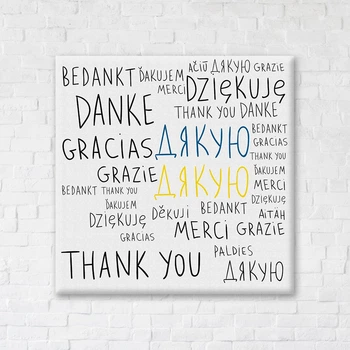 AČIŪ ДЯКУЮ GRAZIE
BEDANKT ĎAKUJEM MERCI DZIĘKUJĘ
DANKE THANK YOU DANKE
GRACIAS ДЯКУЮ BEDANKT
GRACIAS
THANK YOU
GRAZIE ДЯКУЮ ĎAKUJEM
BEDANKT THANK YOU MERCI
ĎAKUJEM BEDANKT DZIĘKUJĘ
DZIĘKUJĘ DĚKUJI AITÄH
GRACIAS MERCI GRAZIE
PALDIES
THANK YOU ДЯКУЮ